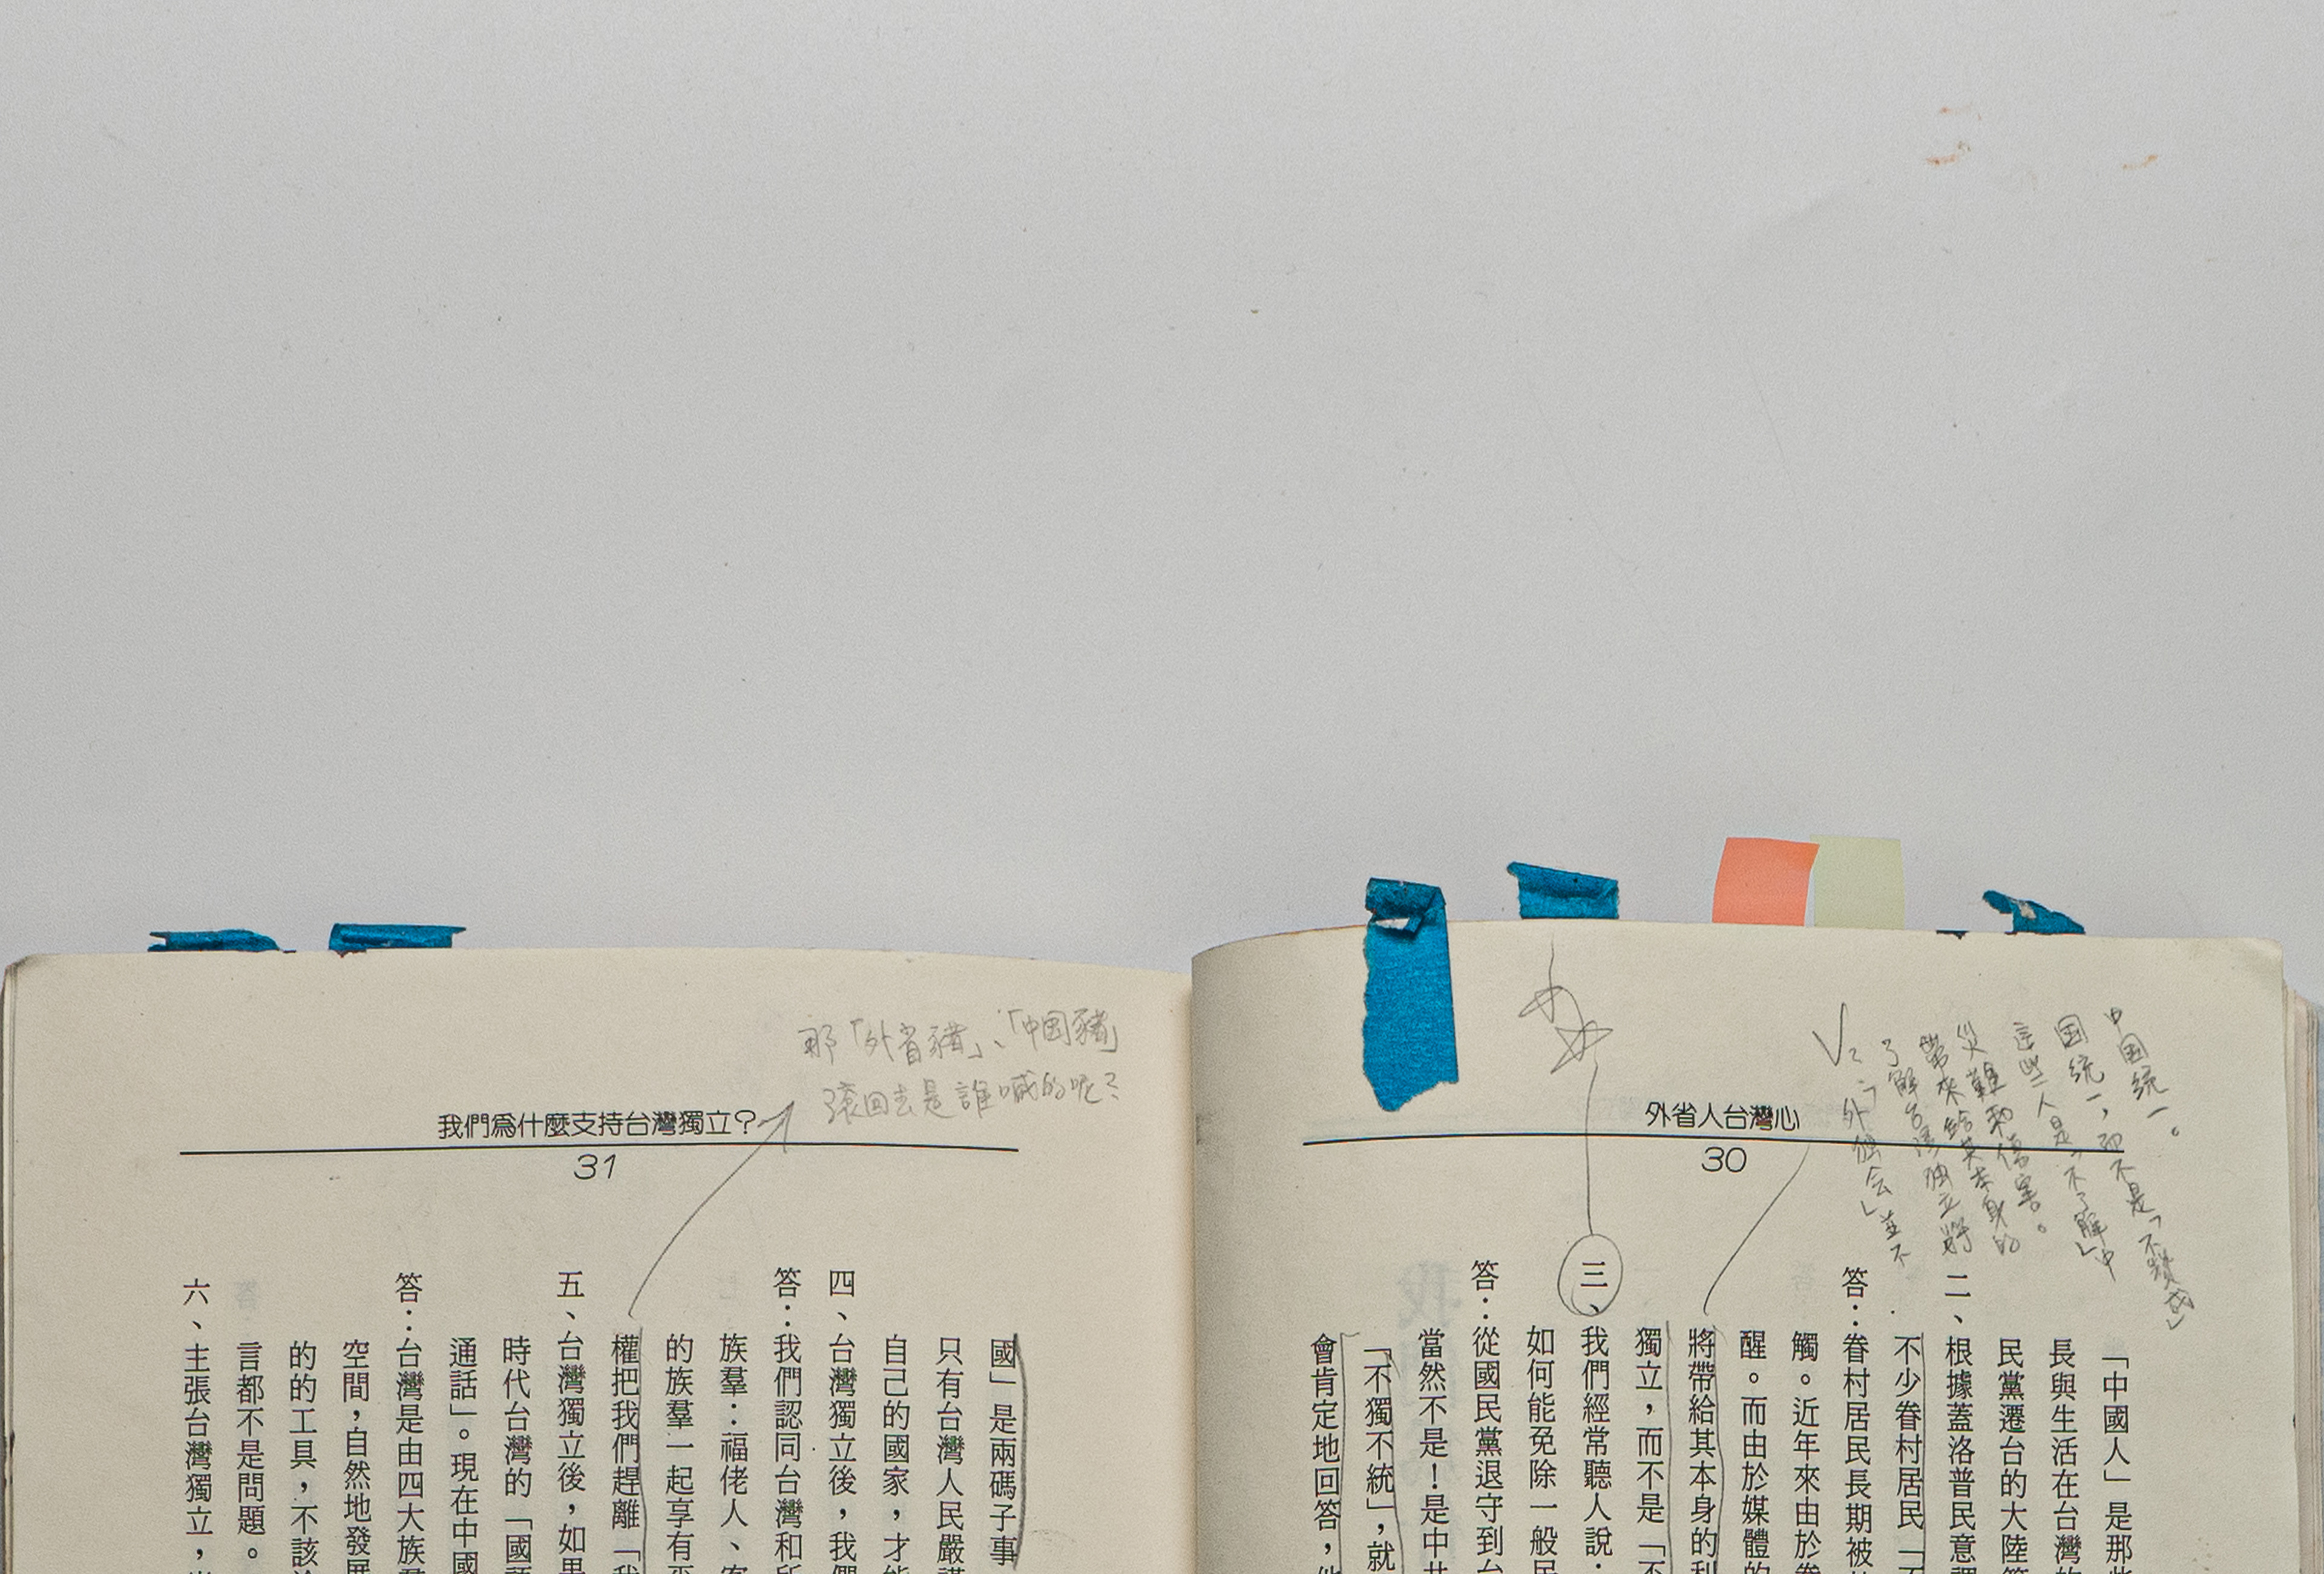 外省人台灣心
30
中国統一。
国統一,而不是「不贊成」
這些人是「不了解」中
災難和傷害。
帶來給其本身的
了解台湾独立將
?「外独会」並不
「中國人」是那些
長與生活在台灣的
民黨遷台的大陸籍
二、根據蓋洛普民意調
不少眷村居民「不
答：眷村居民長期被
觸。近年來由於眷
醒。而由於媒體的
將帶給其本身的利
獨立，而不是「不
三、我們經常聽人說：
如何能免除一般民
答：從國民黨退守到台
當然不是！是中共
「不獨不統」，就
會肯定地回答，他
那「外省豬」、「中国豬」
滾回去是誰喊的呢?
我們爲什麼支持台灣獨立？
31
國」是兩碼子事
只有台灣人民嚴謹
自己的國家，才能
四、台灣獨立後，我們
答：我們認同台灣和所
族羣：福佬人、客
的族羣一起享有平
權把我們趕離「我
五、台灣獨立後，如果
時代台灣的「國語
通話」。現在中國
答：台灣是由四大族羣
空間，自然地發展
的的工具，不該
言都不是問題。
六、主張台灣獨立，